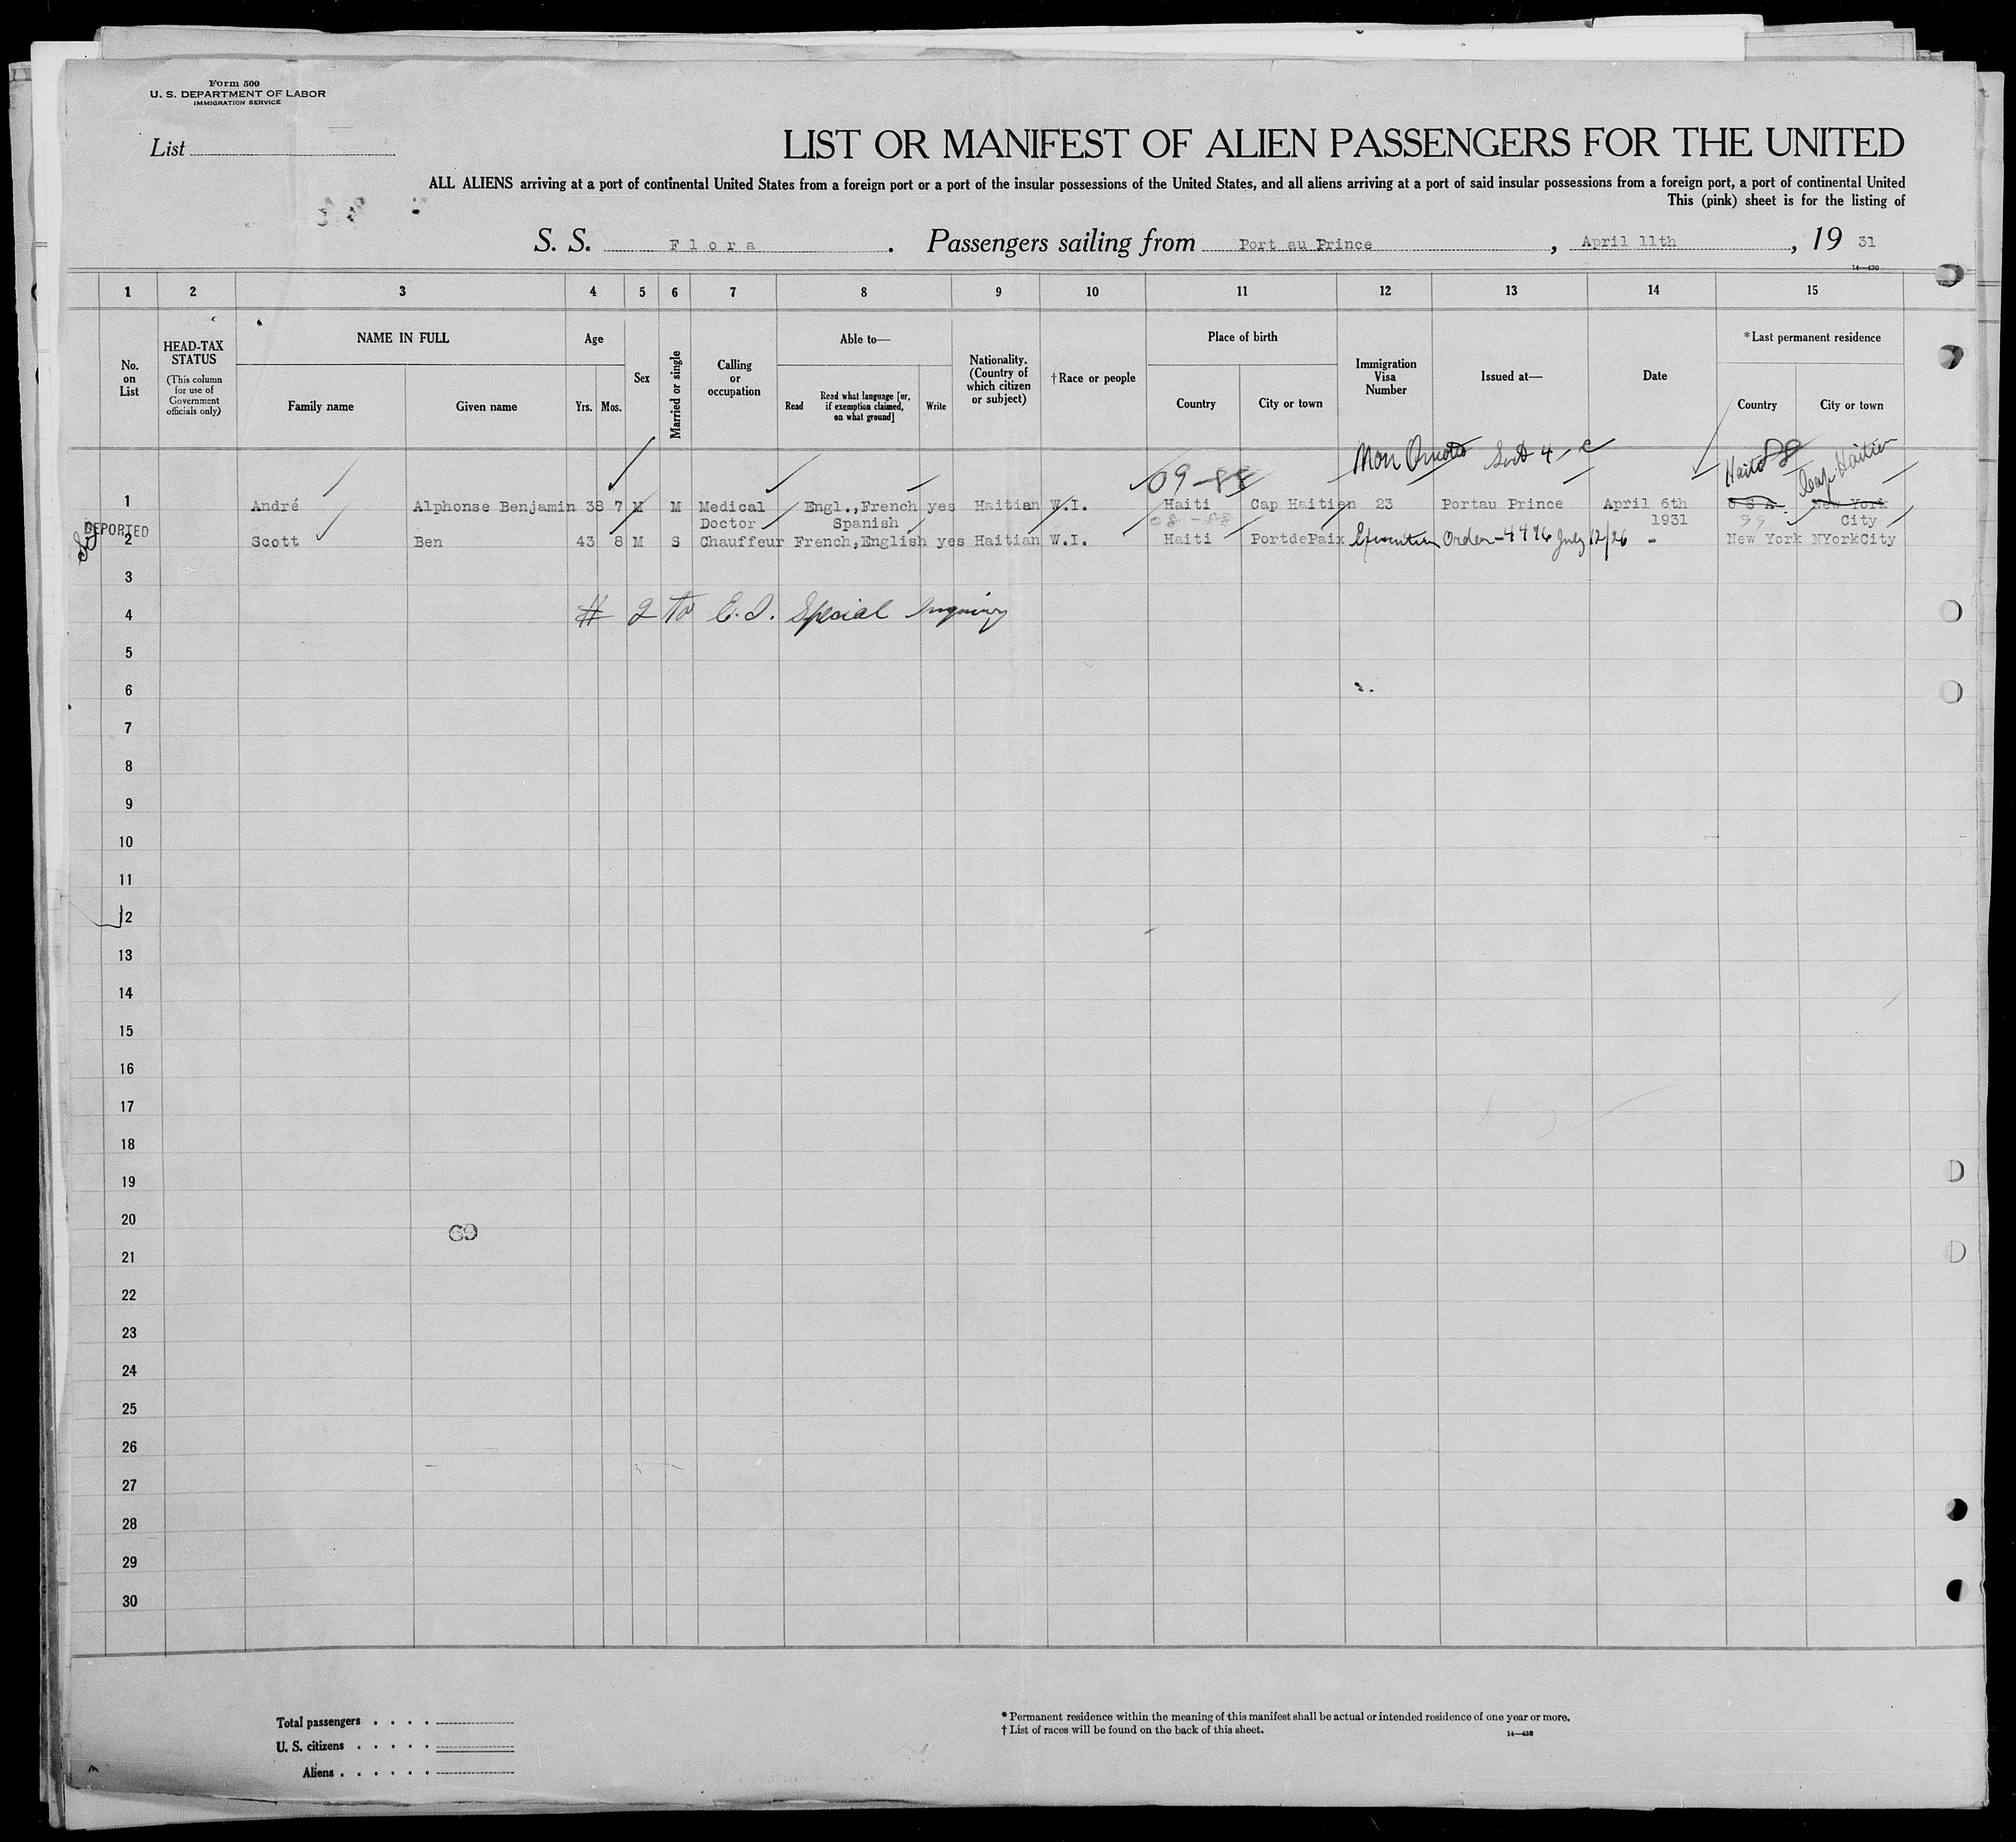 Form 500
U. S. DEPARTMENT OF LABOR
IMMIGRATION SERVICE
List
LIST OR MANIFEST OF ALIEN PASSENGERS FOR THE UNITED
ALL ALIENS arriving at a port of continental United States from a foreign port or a port of the insular possessions of the United States, and all aliens arriving at a port of said insular possessions from a foreign port, a port of continental United
This (pink) sheet is for the listing of
S. S. Flora. Passengers sailing from Port au Prince, April 11th, 19 31
14—430
1 2 3 4 5 6 7 8 9 10 11 12 13 14 15
No. on List
HEAD-TAX STATUS
(This column for use of Government officials only)
NAME IN FULL
Family name
Given name
Age
Yrs. Mos.
Sex
Married or single
Calling or occupation
Able to—
Read
Read what language [or, if exemption claimed, on what ground]
Write
Nationality. (Country of which citizen or subject)
†Race or people
Place of birth
Country
City or town
Immigration Visa Number
Issued at—
Date
*Last permanent residence
Country
City or town
Non Quota Sect 4, C
Haiti 88 Cap-Haitien
09-88
1 André Alphonse Benjamin 38 7 M M Medical Engl.,French yes Haitian W.I. Haiti Cap Haitien 23 Portau Prince April 6th U S A. New York
Doctor Spanish 08-88 1931 99 City
DEPORTED
2 Scott Ben 43 8 M S Chauffeur French,English yes Haitian W.I. Haiti PortdePaix Executive Order-4476 July 12/26 - New York NYorkCity
3
4 # 2 To E.I. Special Inquiry
5
6
7
8
9
10
11
12
13
14
15
16
17
18
19
20
69
21
22
23
24
25
26
27
28
29
30
Total passengers . . . .
U. S. citizens . . . . .
Aliens . . . . . .
* Permanent residence within the meaning of this manifest shall be actual or intended residence of one year or more.
† List of races will be found on the back of this sheet.
14—430